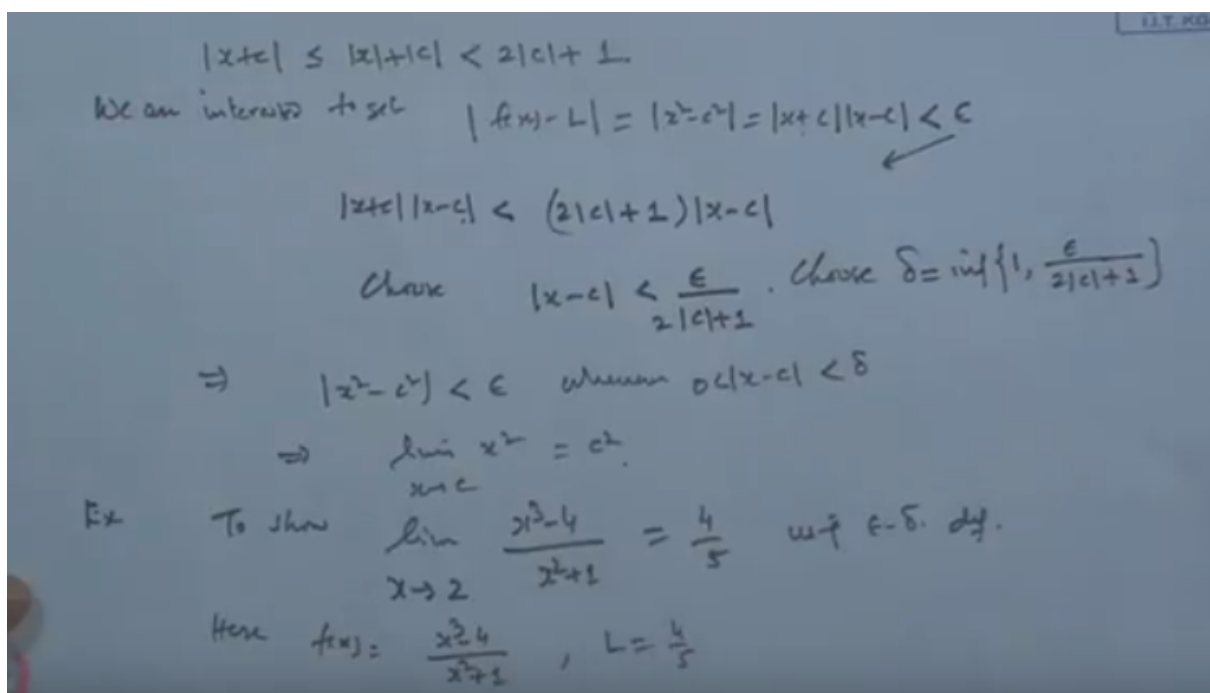 I.I.T. KG
|x+c| ≤ |x|+|c| < 2|c|+ 1
We are interested to get |f(x)-L| = |x²-c²| = |x+c||x-c| < ε
|x+c||x-c| < (2|c|+1)|x-c|
Choose |x-c| < ε/(2|c|+1). Choose δ = inf{1, ε/(2|c|+1)}
⇒ |x²-c²| < ε whenever 0<|x-c| < δ
⇒ lim x→c x² = c².
Ex To show lim x→2 (x³-4)/(x²+1) = 4/5 ε-δ. def.
Here f(x) = (x³-4)/(x²+1), L = 4/5